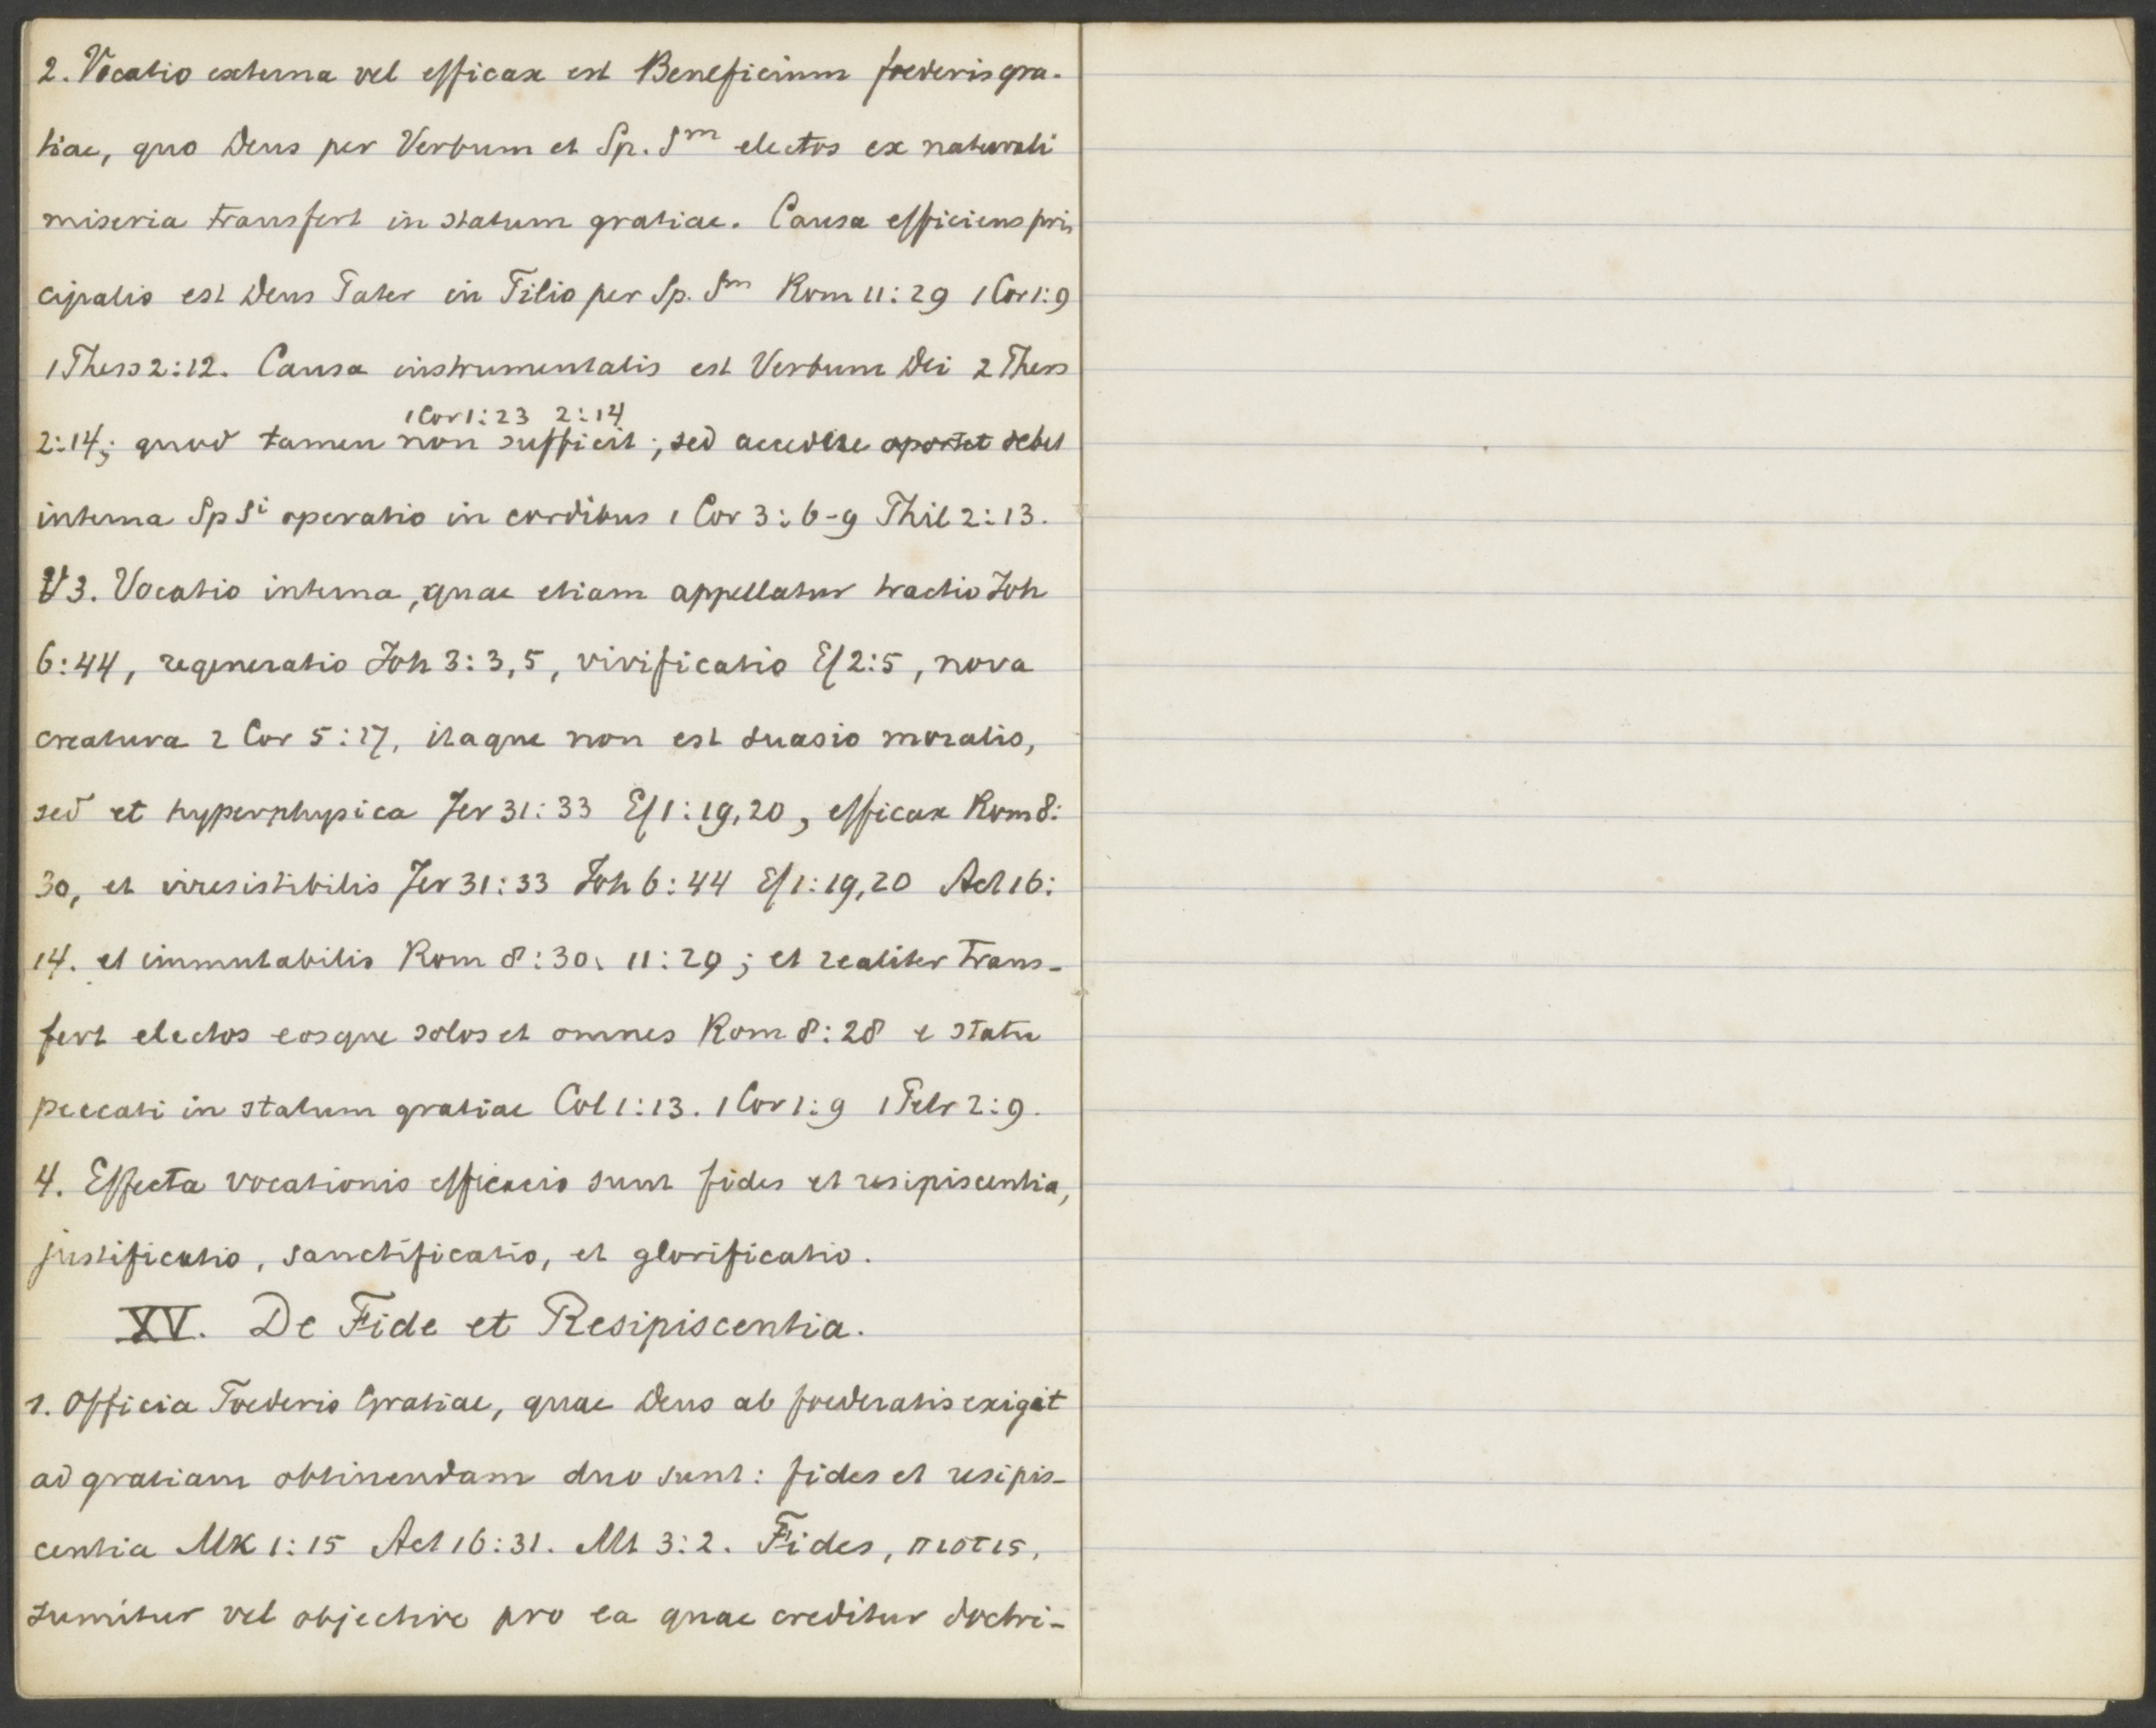 2. Vocatio externa vel efficax est Beneficium foederis gra-
tiae, quo Deus per Verbum et Sp. Sm electos ex naturali
miseria transfert in statum gratiae. Causa efficiens prin
cipalis est Deus Pater in Filio per Sp. Sm Rom 11:29 1 Cor 1:9
1 Thess 2:12. Causa instrumentalis est Verbum Dei 2 Thess
1 Cor 1:23 2:14
2:14; quod tamen non sufficit; sed accedere oportet debet
interna Sp Si operatio in cordibus 1 Cor 3:6-9 Phil 2:13.
3. Vocatio interna, quae etiam appellatur tractio Joh
6:44, regeneratio Joh 3:3,5, vivificatio Ef 2:5, nova
creatura 2 Cor 5:17, itaque non est suasio moralis,
sed et hyperphysica Jer 31:33 Ef 1:19,20, efficax Rom 8:
30, et irresistibilis Jer 31:33 Joh 6:44 Ef 1:19,20 Act 16:
14. et immutabilis Rom 8:30. 11:29; et realiter trans-
fert electos eosque solos et omnes Rom 8:28 e statu
peccati in statum gratiae Col 1:13. 1 Cor 1:9 1 Petr 2:9.
4. Effecta vocationis efficacis sunt fides et resipiscentia,
justificatio, sanctificatio, et glorificatio.
XV. De Fide et Resipiscentia.
1. Officia Foederis Gratiae, quae Deus ab foederatis exigit
ad gratiam obtinendam duo sunt: fides et resipis-
centia Mk 1:15 Act 16:31. Mt 3:2. Fides, πιστις,
sumitur vel objective pro ea quae creditur doctri-